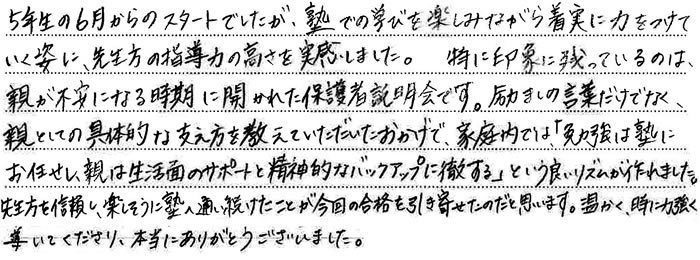 5年生の6月からのスタートでしたが、塾での学びを楽しみながら着実に力をつけて
いく姿に、先生方の指導力の高さを実感しました。 特に印象に残っているのは、
親が不安になる時期に開かれた保護者説明会です。励ましの言葉だけでなく、
親としての具体的な支え方を教えていただいたおかげで、家庭内では「勉強は塾に
お任せし、親は生活面のサポートと精神的なバックアップに徹する」という良いリズムが作れました。
先生方を信頼し、楽しそうに塾へ通い続けたことが今回の合格を引き寄せたのだと思います。温かく、時に力強く
導いてくださり、本当にありがとうございました。